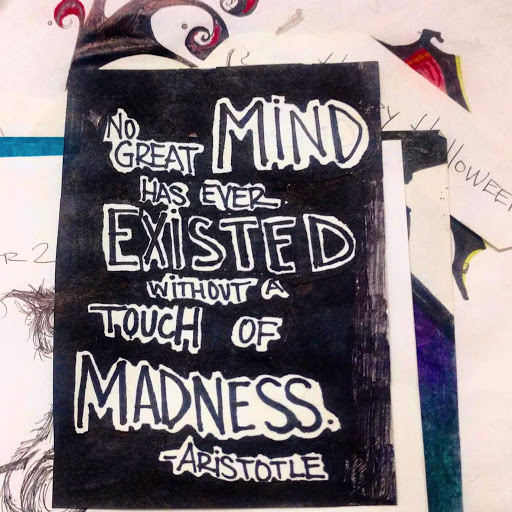 No
GREAT MiND
HAS EVER
EXiSTED
WiTHOUT A
TOUCH OF
MADNESS.
-ARiSTOTLE
Happy Halloween
R 2